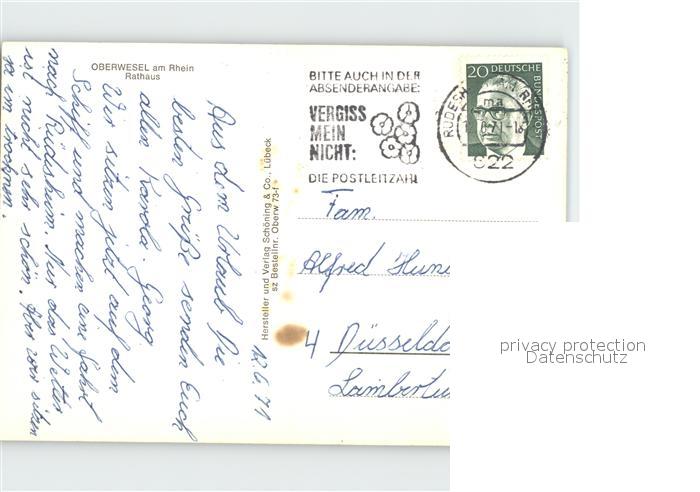 OBERWESEL am Rhein
Rathaus
BITTE AUCH IN DER
ABSENDERANGABE:
VERGISS
MEIN
NICHT:
DIE POSTLEITZAHL
20 DEUTSCHE
BUNDESPOST
822
Hersteller und Verlag Schöning & Co., Lübeck
sz Bestellnr. Oberw 73-f
12.6.71
Aus dem Urlaub die
besten Grüße senden Euch
allen Karola. Georg
Wir sitzen jetzt auf dem
Schiff und machen eine Fahrt
nach Rüdesheim. Nur das Wetter
ist nicht sehr schön. Aber wir sitzen
ja im trocknen.
Fam.
Alfred
4 Düsseldo
Lambertu
privacy protection
Datenschutz